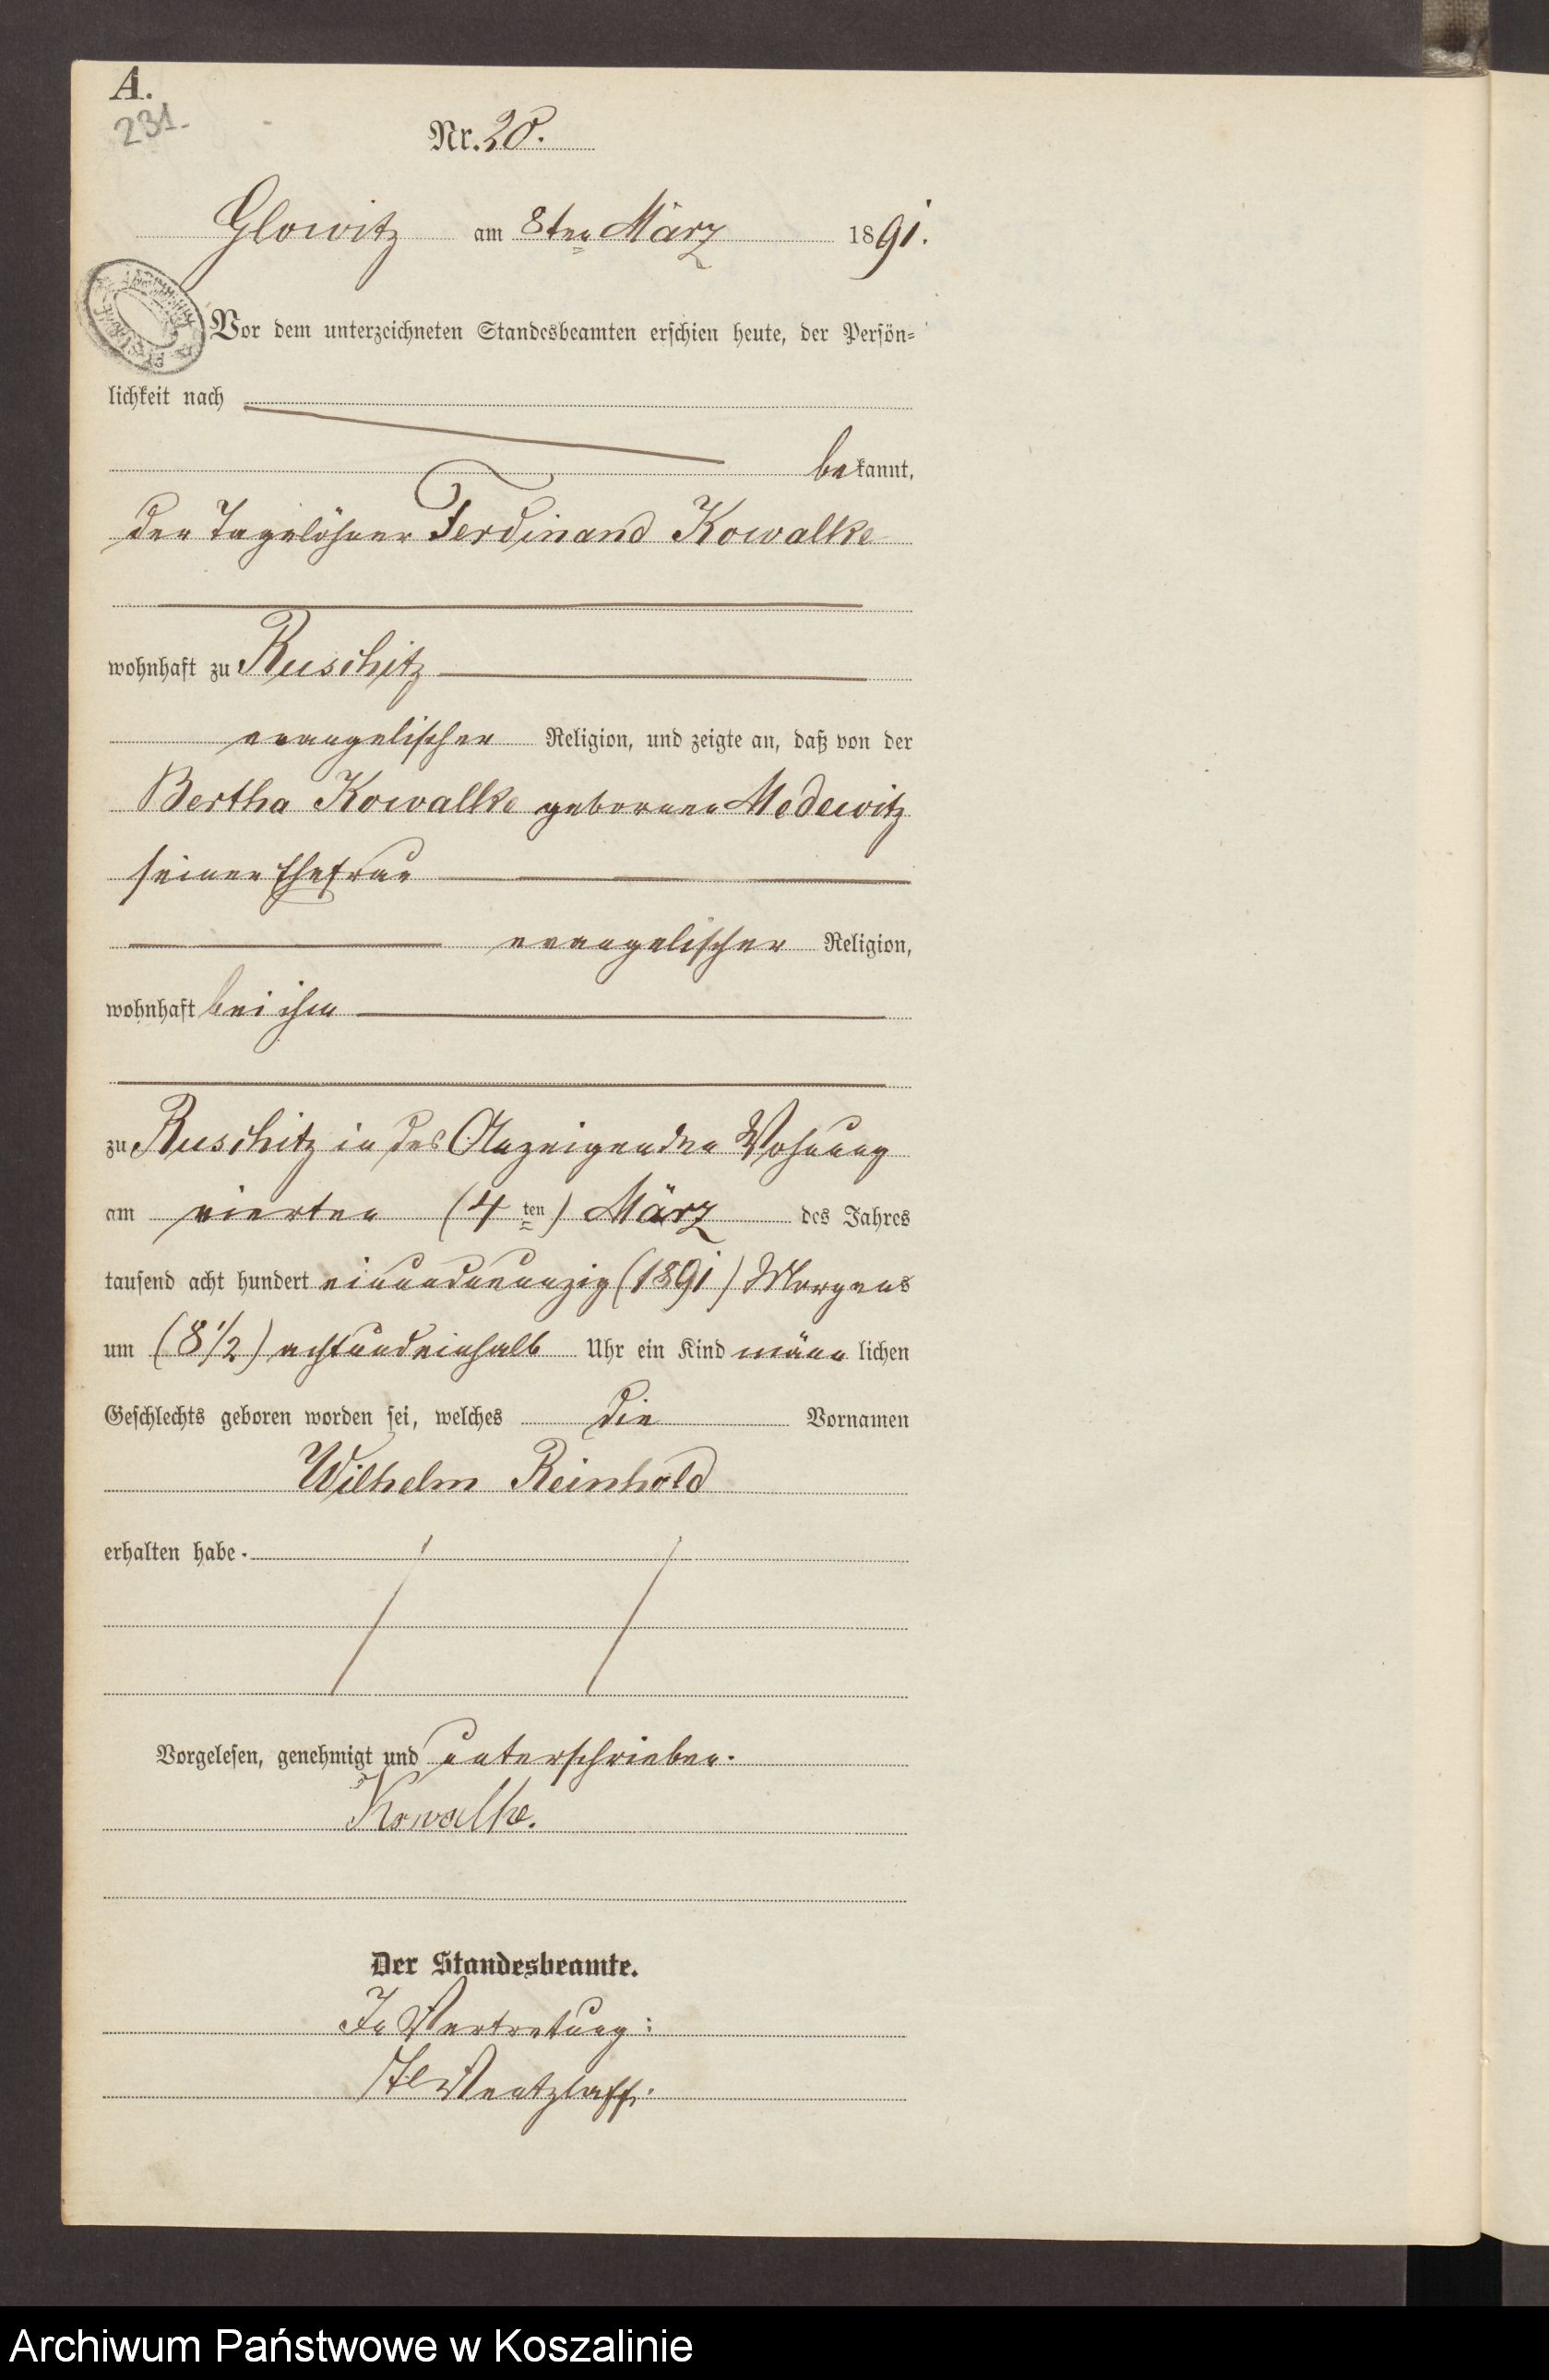 A.
231.
Nr. 20.
Glowitz am 8ten März 1891.
Vor dem unterzeichneten Standesbeamten erschien heute, der Persön-
lichkeit nach
bekannt,
der Tagelöhner Ferdinand Kowalke
wohnhaft zu Ruschitz
evangelischer Religion, und zeigte an, daß von der
Bertha Kowalke geborenen Modewitz
seiner Ehefrau
evangelischer Religion,
wohnhaft bei ihm
zu Ruschitz in des Anzeigenden Wohnung
am vierten (4ten) März des Jahres
tausend acht hundert einundneunzig (1891) Morgens
um (8 1/2) achtundeinhalb Uhr ein Kind männlichen
Geschlechts geboren worden sei, welches die Vornamen
Wilhelm Reinhold
erhalten habe.
Vorgelesen, genehmigt und unterschrieben.
Kowalke.
Der Standesbeamte.
In Vertretung:
Wentzlaff.
Archiwum Państwowe w Koszalinie